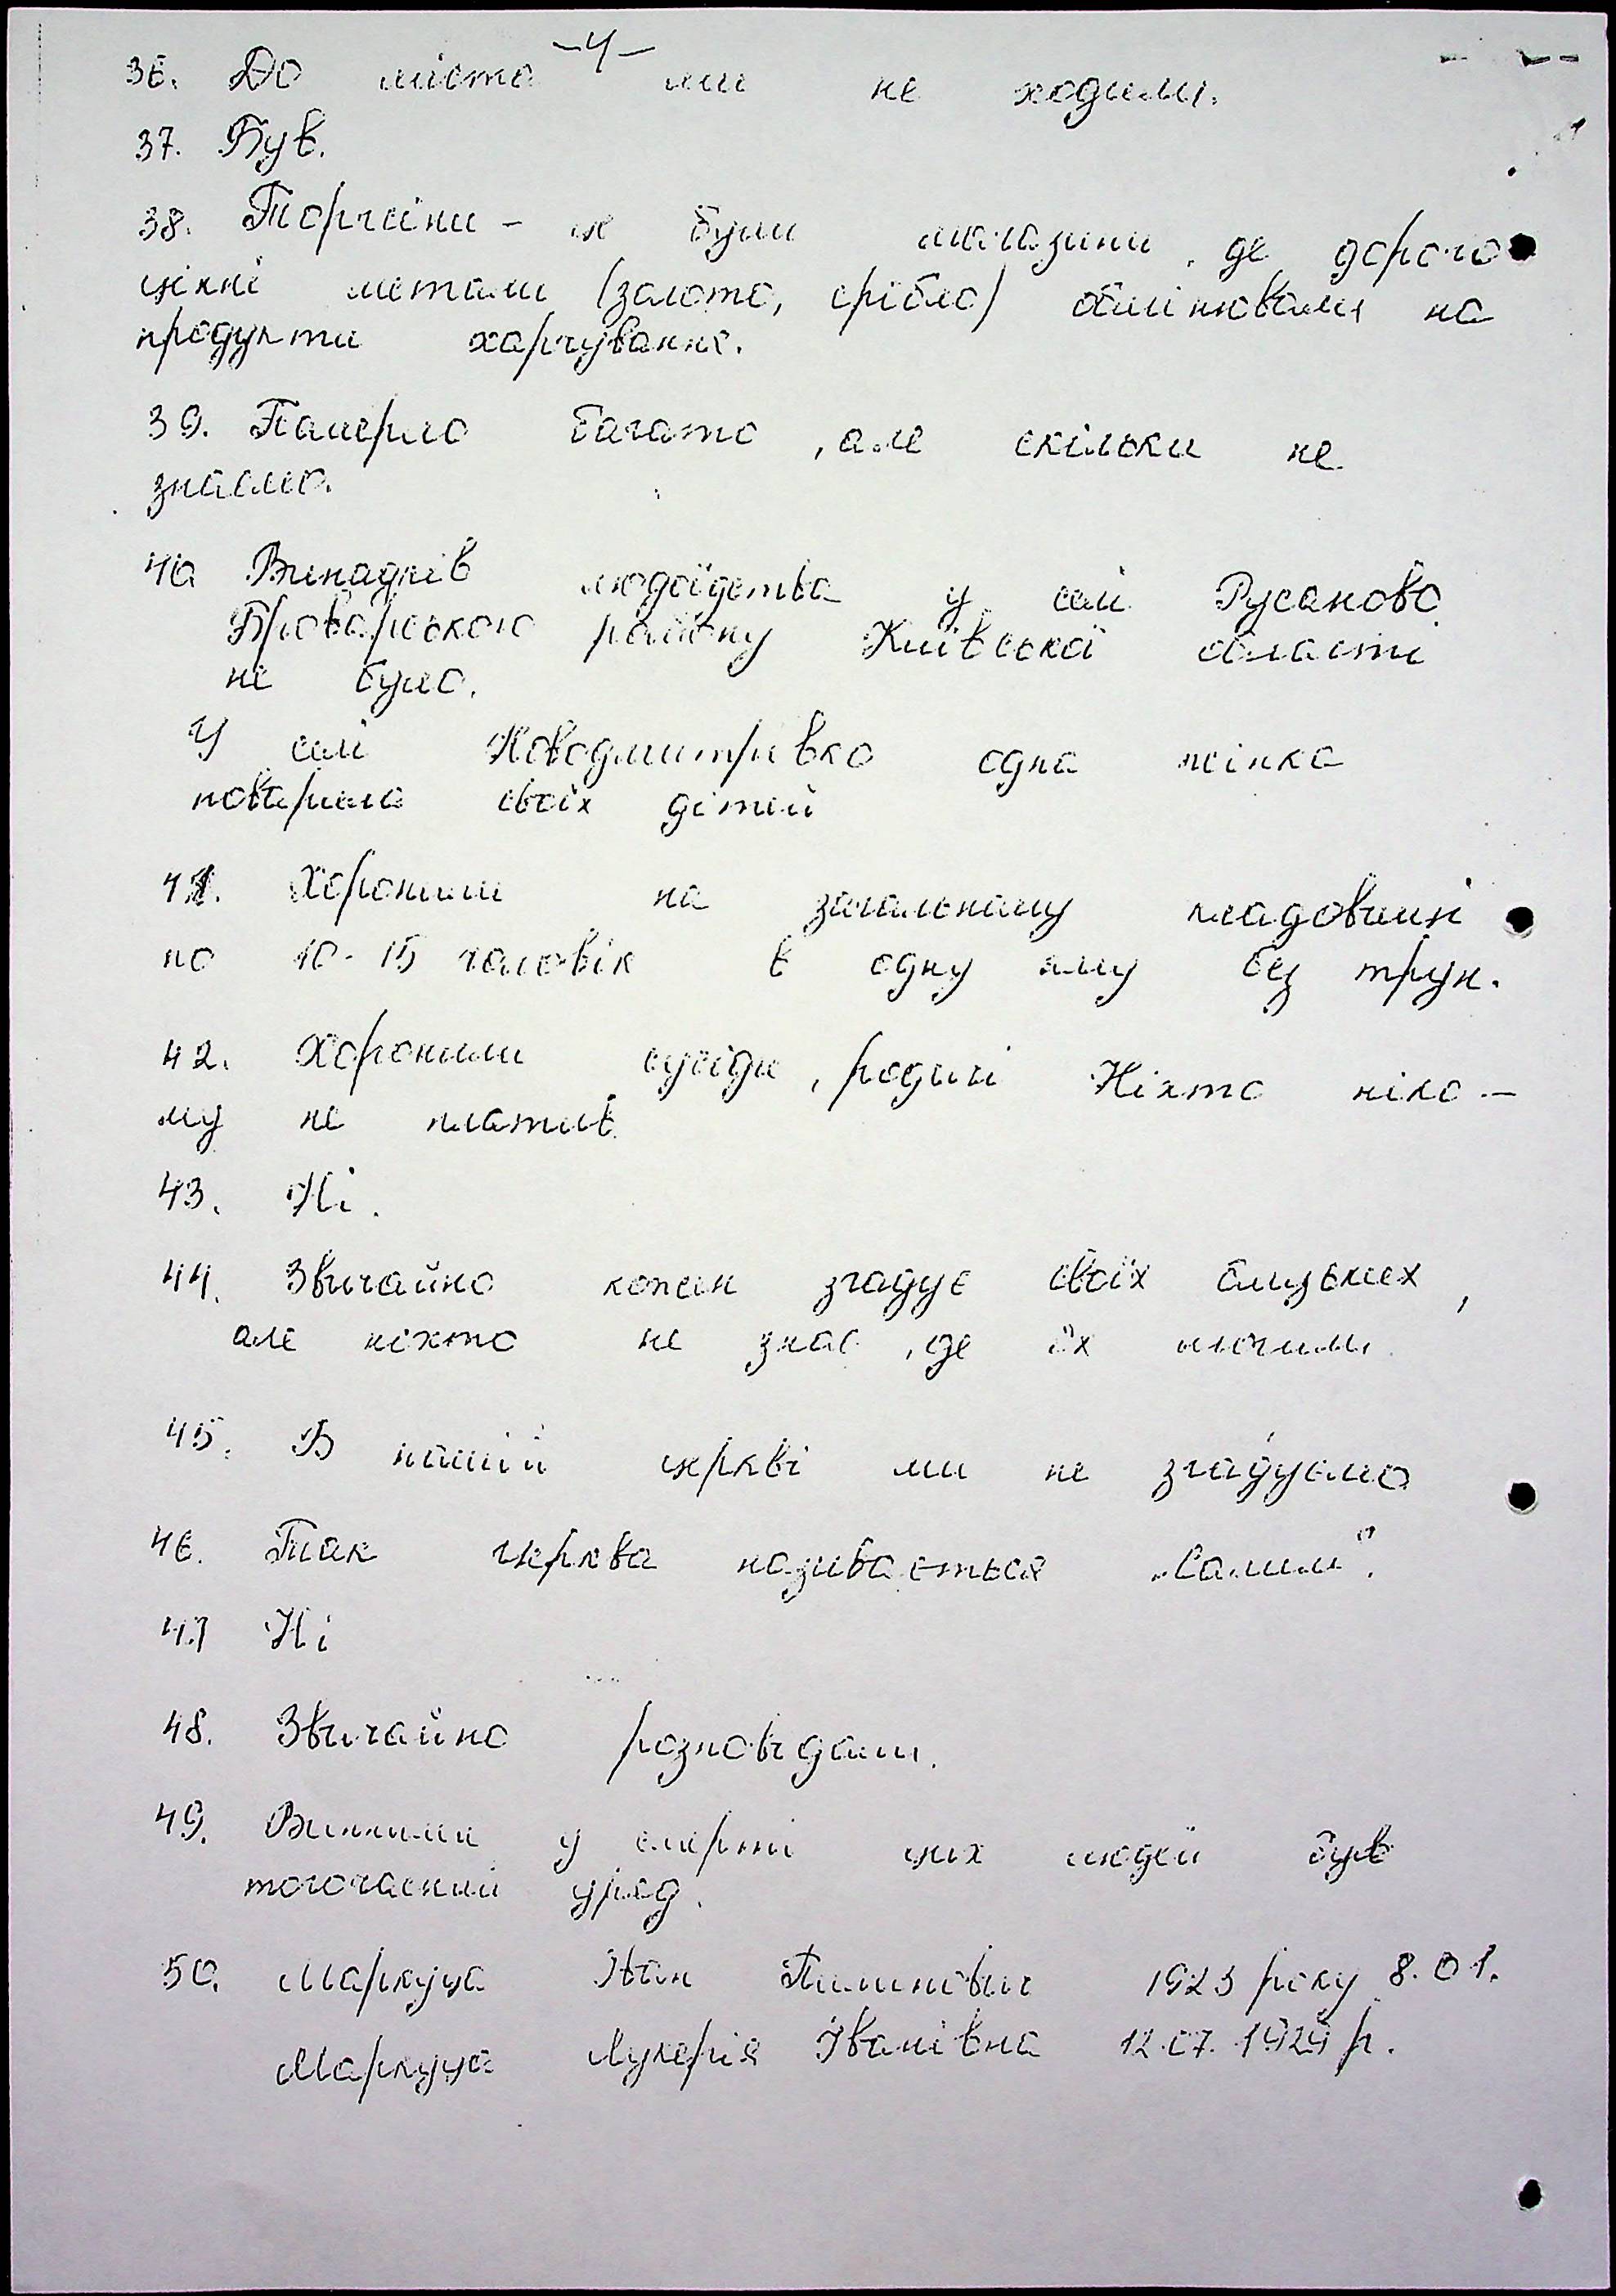 -4-
36. До міста ми не ходили.
37. Був.
38. Торгсіни - це були магазини, де дорого
цінні метали (золото, срібло) обмінювали на
продукти харчування.
39. Памерло багато, але скільки не
знаємо.
40 Випадків людоїдства у селі Русаково
Броварського району Київської області
не було.
У селі Новодмитрівка одна жінка
поварила своїх дітей
41. Хоронили на загальному кладовищі
по 10-15 чоловік в одну яму без трун.
42. Хоронили сусіди, родичі Ніхто ніко-
му не платив.
43. Ні.
44. Звичайно кожен згадує своїх близьких,
але ніхто не знає, де їх могили.
45. В нашій церкві ми не згадуємо
46. Так церква називається
47 Ні
48. Звичайно розповідали.
49. Винними у смерті цих людей був
тогочасний уряд.
50. Маркуца Іван Пилипович 1923 року 8.01.
Маркуца Лукерія Іванівна 12.07.1924 р.